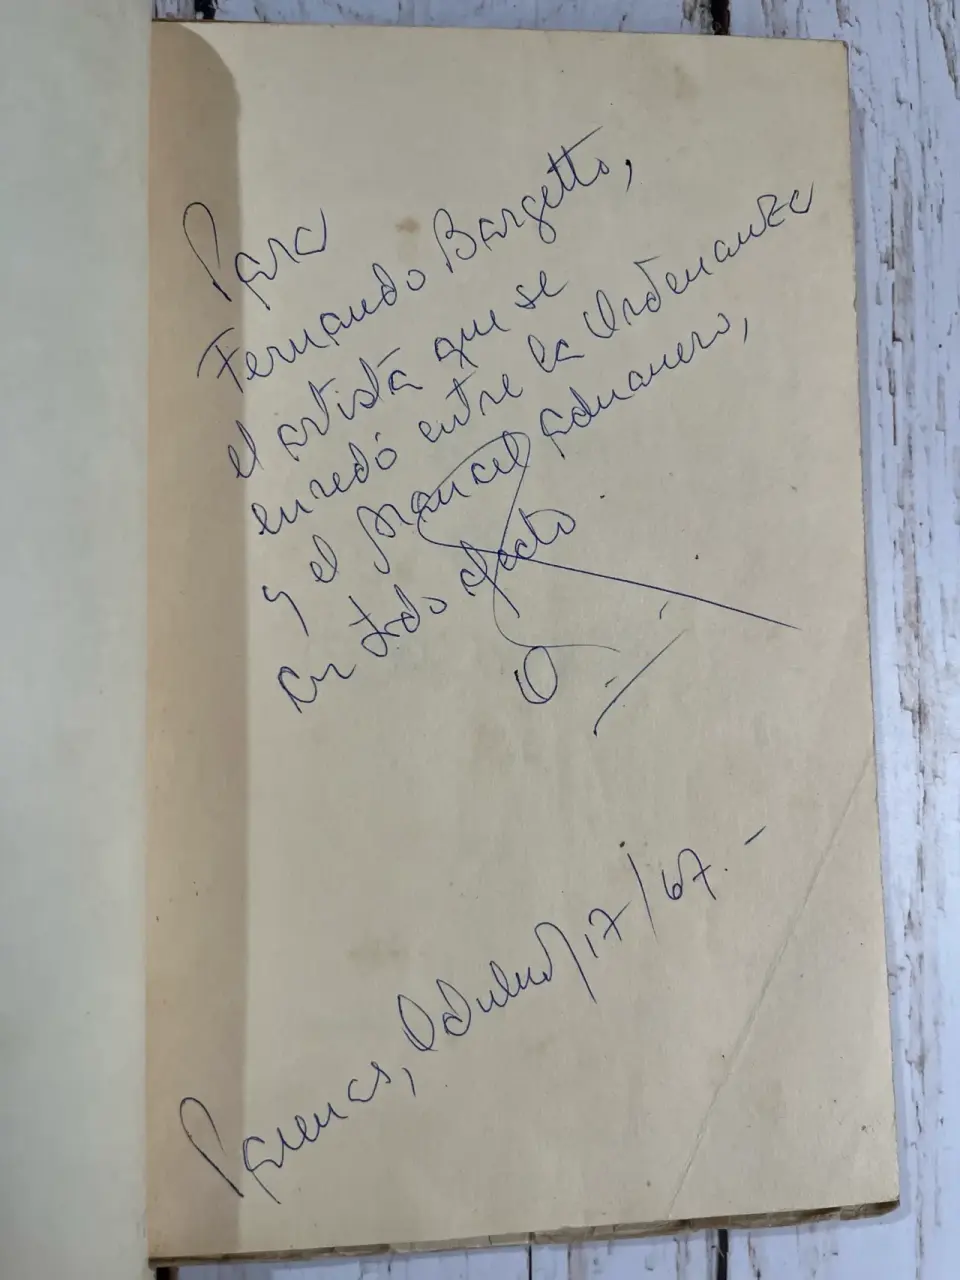 Para
Fernando Bargetto,
el artista que se
enredó entre la Ordenanza
y el Arancel Aduanero,
con todo afecto
Parenas, Octubre/17/67.-